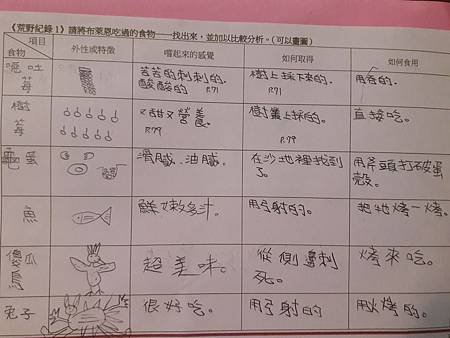 《荒野紀錄1》請將布萊恩吃過的食物一一找出來,並加以比較分析。(可以畫圖)
項目 食物 外性或特徵 嚐起來的感覺 如何取得 如何食用
噁吐莓 苦苦的刺刺的.酸酸的 P.71 樹上採下來的. P.71 用吞的.
樹莓 又甜又營養. P.79 樹叢上採的. P.79 直接吃。
龜蛋 滑膩.油膩. 在沙地裡找到了。 用斧頭打破蛋殼。
魚 鮮嫩多汁。 用弓射的。 把牠烤一烤。
傻瓜鳥 超美味。 從側邊刺死。 烤來吃。
兔子 很好吃。 用弓射的 用火烤的。